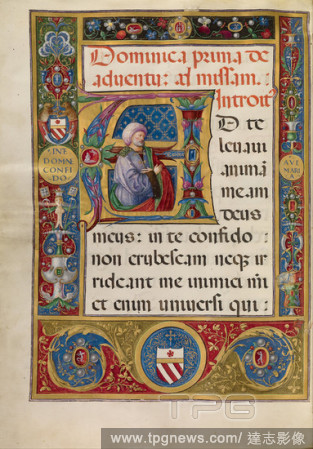 Dominica prima de
adventu: ad missam:
Introit
A
D te
levavi
animā
meam
deus
meus: in te confido
non erubescam neqȝ ir
rideant me inimici mī
et enim universi qui:
IN TE
DOMIN.
CONFI
DO
AVE
MARI
A
TPG
www.tpgnews.com/ 達志影像